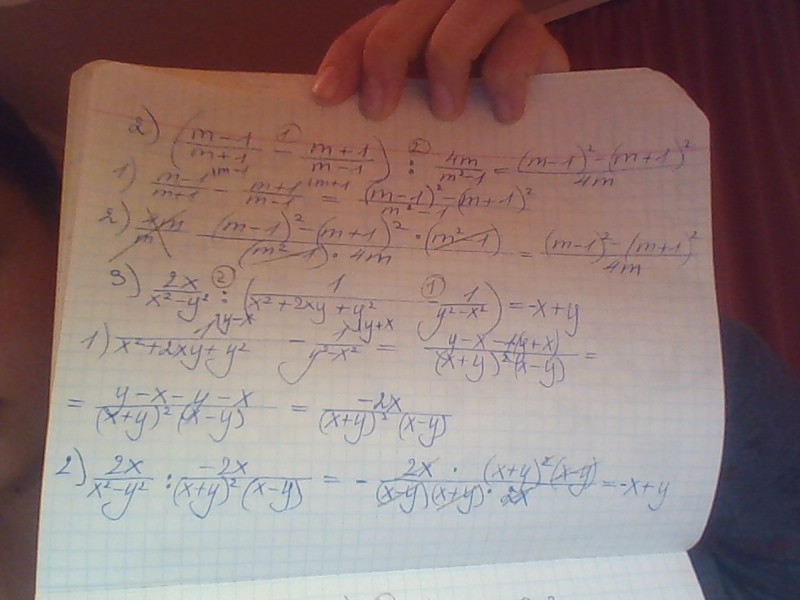 2) ((m-1)/(m+1) -① (m+1)/(m-1)) :② 4m/(m²-1) = ((m-1)²-(m+1)²)/4m
1) (m-1)/(m+1) ^(m-1) - (m+1)/(m-1) ^(m+1) = ((m-1)²-(m+1)²)/(m²-1)
2) ((m-1)²-(m+1)²)·(m²-1)/((m²-1)·4m) = ((m-1)²-(m+1)²)/4m
3) 2x/(x²-y²) :② (1/(x²+2xy+y²) -① 1/(y²-x²)) = -x+y
1) 1/(x²+2xy+y²) ^(y-x) - 1/(y²-x²) ^(y+x) = (y-x-1(y+x))/((x+y)²(x-y)) =
= (y-x-y-x)/((x+y)²(x-y)) = -2x/((x+y)²(x-y))
2) 2x/(x²-y²) : -2x/((x+y)²(x-y)) = - 2x·(x+y)²(x-y)/((x-y)(x+y)·2x) = -x+y